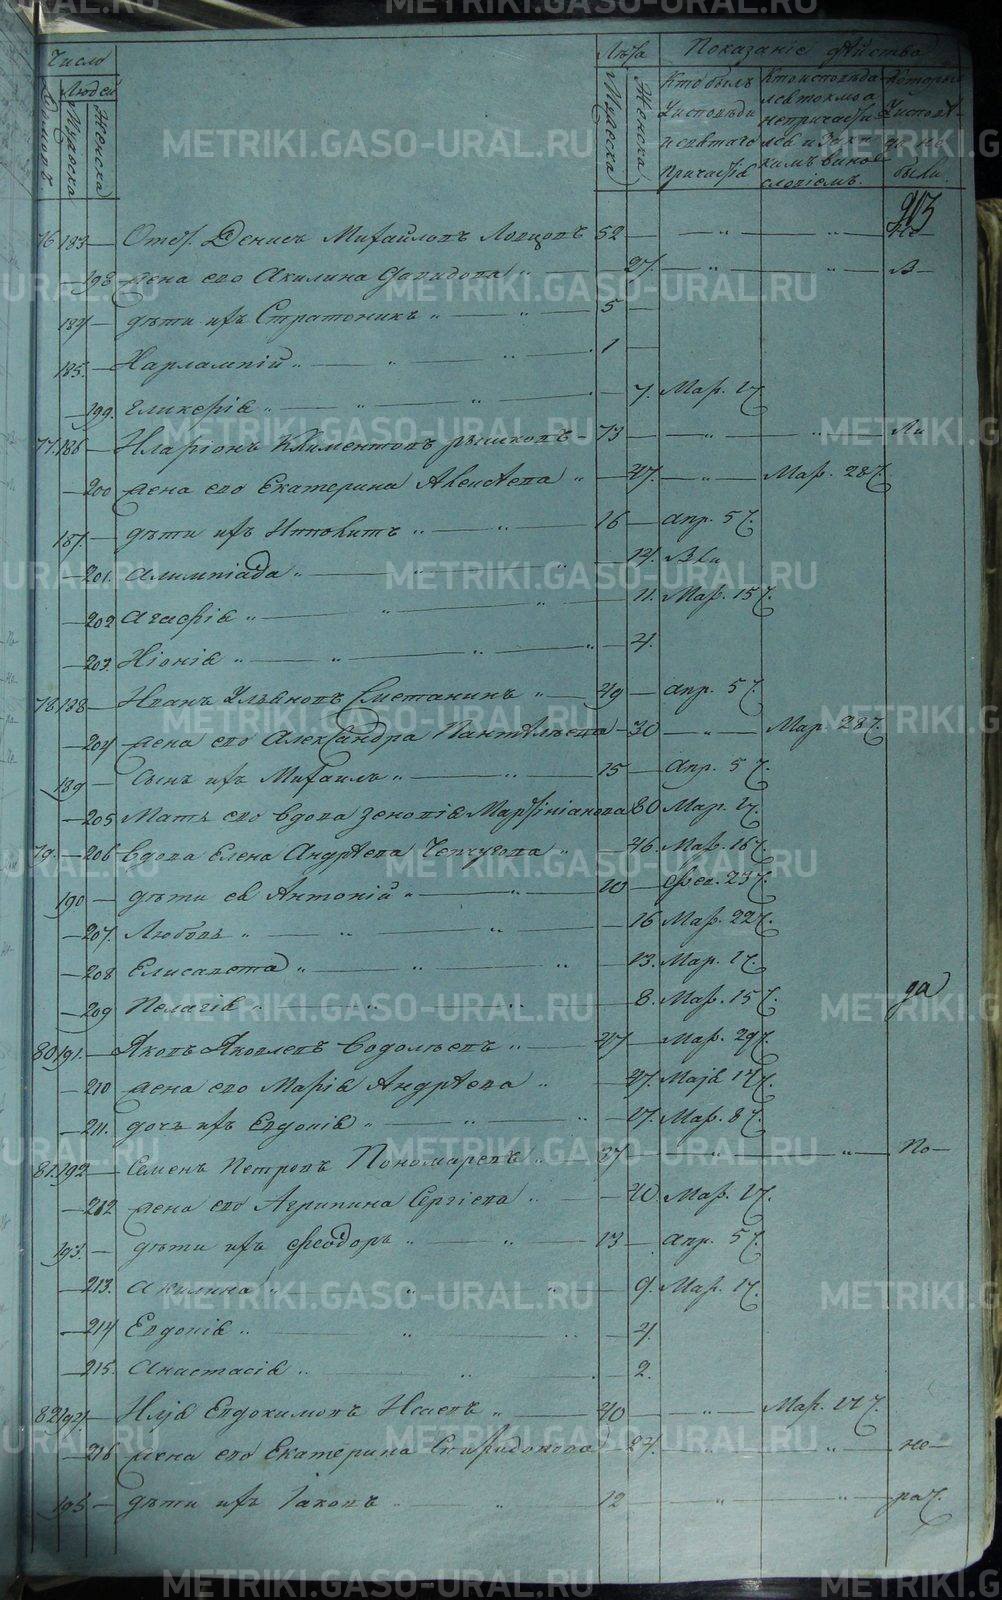 Число
Людей
Мужска
Женска
Лѣта
Мужска
Женска
Показаніе дѣйства
Кто былъ у исповѣди и святаго причастія
Кто исповѣдался токмо а не причастился и за какимъ винословіемъ.
Которые у исповѣди не были.
903
76 183 Отст. Денисъ Михайловъ 52 — „ — „ — Не-
198 жена его Акилина Давидова „ 27. — „ — „ — в-
184 дѣти ихъ Стратоникъ „ 5
185. Харлампій „ 1
199. Гликерія „ 7. Мар. 1 ч.
77. 186 Иларіонъ Климентовъ 73 — „ — „ — ли
200 жена его Екатерина Авксентѣева „ 47. — „ — Мар. 28 ч.
187. дѣти ихъ Ипполитъ „ 16 апр. 5 ч.
201. Алимпіада „ 14.
202 Агафія „ 11. Мар. 15 ч.
203. Нонія „ 4.
78. 188 Иванъ Ульяновъ Сметанинъ „ 49 апр. 5 ч.
204 жена его Александра Пантелѣева 30 — „ — Мар. 28 ч.
189 сынъ ихъ Михаилъ „ 15 Апр. 5 ч.
205 Мать его вдова Зеновія Мартиніанова 80 Мар. 1 ч.
79. 206 вдова Елена Андрѣева „ 46 Мар. 16 ч.
190 дѣти ея Антоній „ 20 Фев. 23 ч.
207. Любовь „ 16 Мар. 22 ч.
208 Елисавета „ 13. Мар. 1 ч.
209 Пелагія „ 8. Мар. 15 ч. да
80 191. Яковъ Яковлевъ Водолѣевъ „ 47 Мар. 29 ч.
210 жена его Марія Андрѣева „ 47. Маія 17 ч.
211. дочь ихъ Евдокія „ 17. Мар. 8 ч.
81. 192 Семенъ Петровъ Пономаревъ „ 37 — „ — „ — По-
212 жена его Агрипина Сергіева „ 40 Мар. 1 ч.
193. дѣти ихъ Феодоръ „ 13 апр. 5 ч.
213. Акилина „ 9. Мар. 1 ч.
214 Евдокія „ 4.
215. Анастасія „ 2.
82 194 Илія Евдокимовъ Исаевъ „ 40 — „ — Мар. 17 ч.
216 жена его Екатерина Спиридонова 24. — „ — „ — не-
195 дѣти ихъ Іаковъ „ 12 — „ — „ — рач.
METRIKI.GASO-URAL.RU